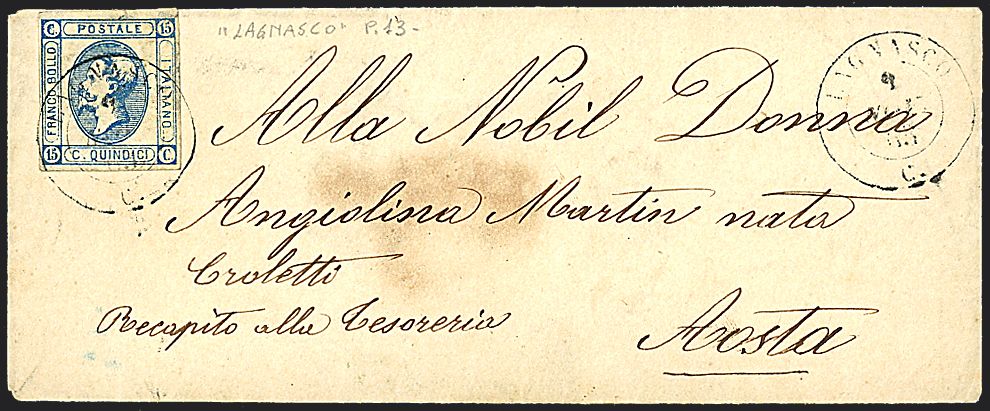 "LAGNASCO" P.13-
C. POSTALE 15
FRANCO BOLLO
ITALIANO
15 C. QUINDICI C.
LAGNASCO
C.
Alla Nobil Donna
Angiolina Martin nata
Croletti
Recapito alla Tesoreria
Aosta